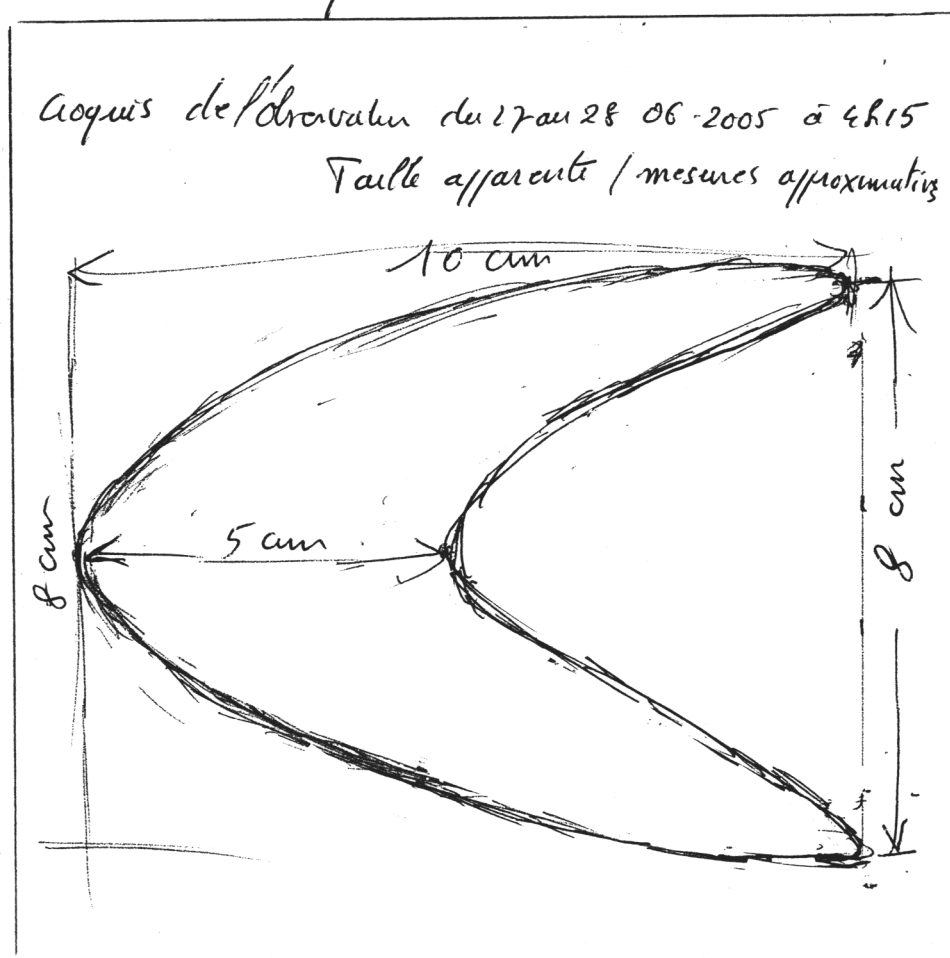 Croquis de l'observation du 27 au 28 06-2005 à 4h15
Taille apparente / mesures approximatives
10 cm
5 cm
8 cm
8 cm